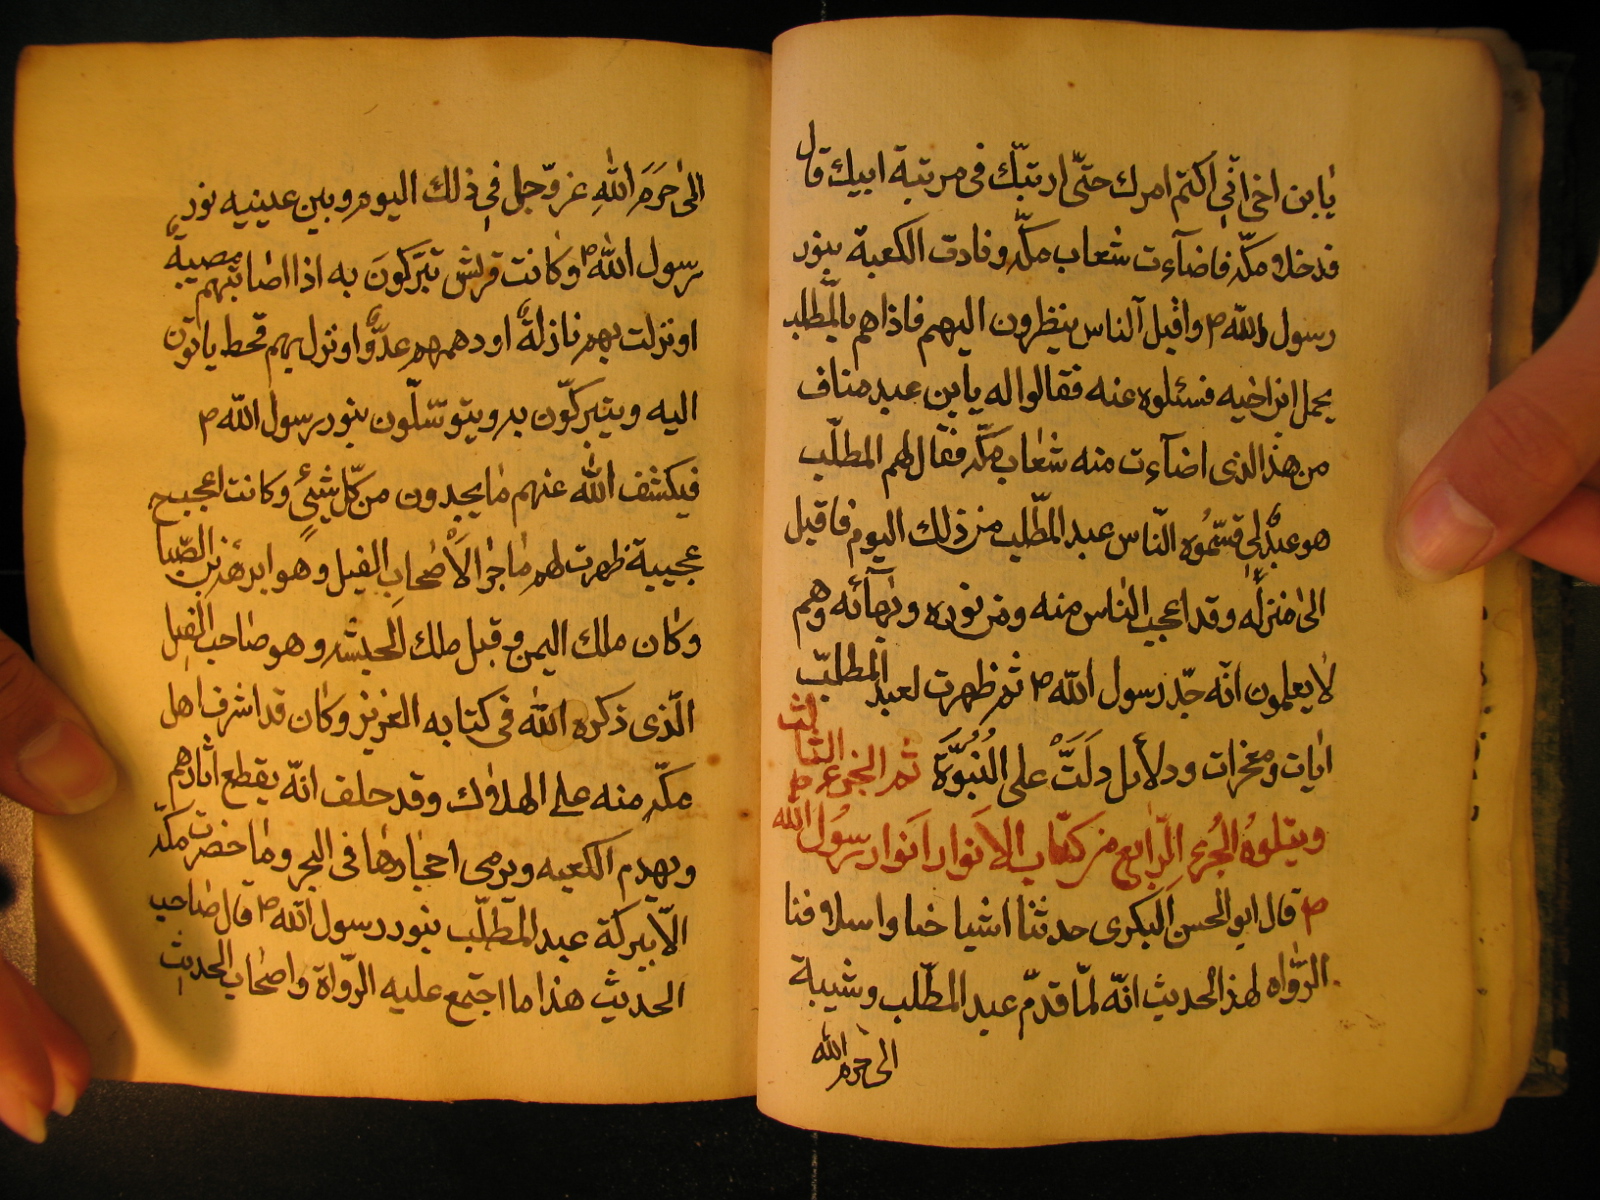 يا بن اخى انى اكتم امرك حتّى ارتبّك فى مرتبة ابيك قال
فدخلا ومكّه فاضآءت شعاب مكّه وفادت الكعبة بنور
رسول الله ص واقبل الناس ينظرون اليهم فاذا هم بالمطلب
يحمل ابن اخيه فسئلوه عنه فقالوا له يا بن عبد مناف
من هذ الذى اضآءت منه شعاب مكّه فقال لهم المطلّب
هو عبدٌ لى فسّموه النّاس عبد المطّلب من ذلك اليوم فاقبل
الى منزله وقد اعجب الناس منه ومن نوره وبهآئه وهم
لا يعلمون انّه جدّ رسول الله ص ثم ظهرت لعبد المطلبّ
ايات ومعجزات ودلايل دلَتّ على النُبُوَّة ثم الجزء الثالث
ويتلوه الجُزء الرّابع من كتاب الانوار انوار رسُول الله
ص قال ابو الحسن البكرى حدثنا اشياخنا واسلافنا
الرّواه لهذ الحديث انّه لمّا قدمّ عبد المطّلب وشيبة
الى حرم الله
الى حَرَمَ اللهِ عزّ وجل فى ذلك اليوم وبين عينيه نور
رسول الله ص وكانت قريش تبَرّكونَ به اذا اصابتهم مصيبةٌ
او نزلت بهم نازلةٌ او دهمهم عدوٌّ او نزل بهم قحط ياتون
اليه ويتبركّون به ويتوسّلون بنور رسول الله ص
فيكشف الله عنهم ما يجدون من كلّ شىءٍ وكانت اعجب
عجيبة ظهرت لهم ما جرا لاَصْحاب الفيل وهو ابرهة بن الصّبا
وكان ملك اليمن وقبل ملك الحبشه وهو صاحب الفيل
الّذى ذكره الله فى كتابه العزيز وكان قد اشرف اهل
مكّه منه على الهلاك وقد حلف انّه يقطع اثارهم
ويهدم الكعبه ويرمى احجارها فى البحر وما حضرت مكّه
الّا ببركة عبد المطّلب بنور رسول الله ص قال صاحب
الحديث هذا ما اجتمع عليه الرّواة واصحاب الحديث